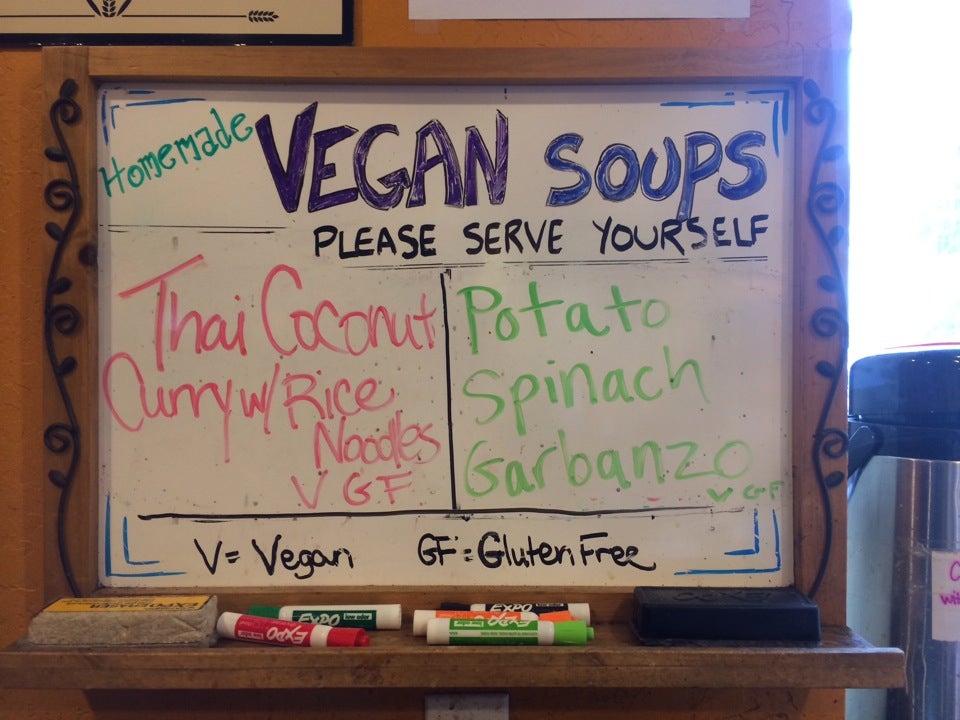 Homemade
VEGAN SOUPS
PLEASE SERVE YOURSELF
Thai Coconut
Curry w/ Rice
Noodles
V GF
Potato
Spinach
Garbanzo
V GF
V = Vegan GF = Gluten Free
EXPO
EXPO
EXPO
EXPO
EXPO